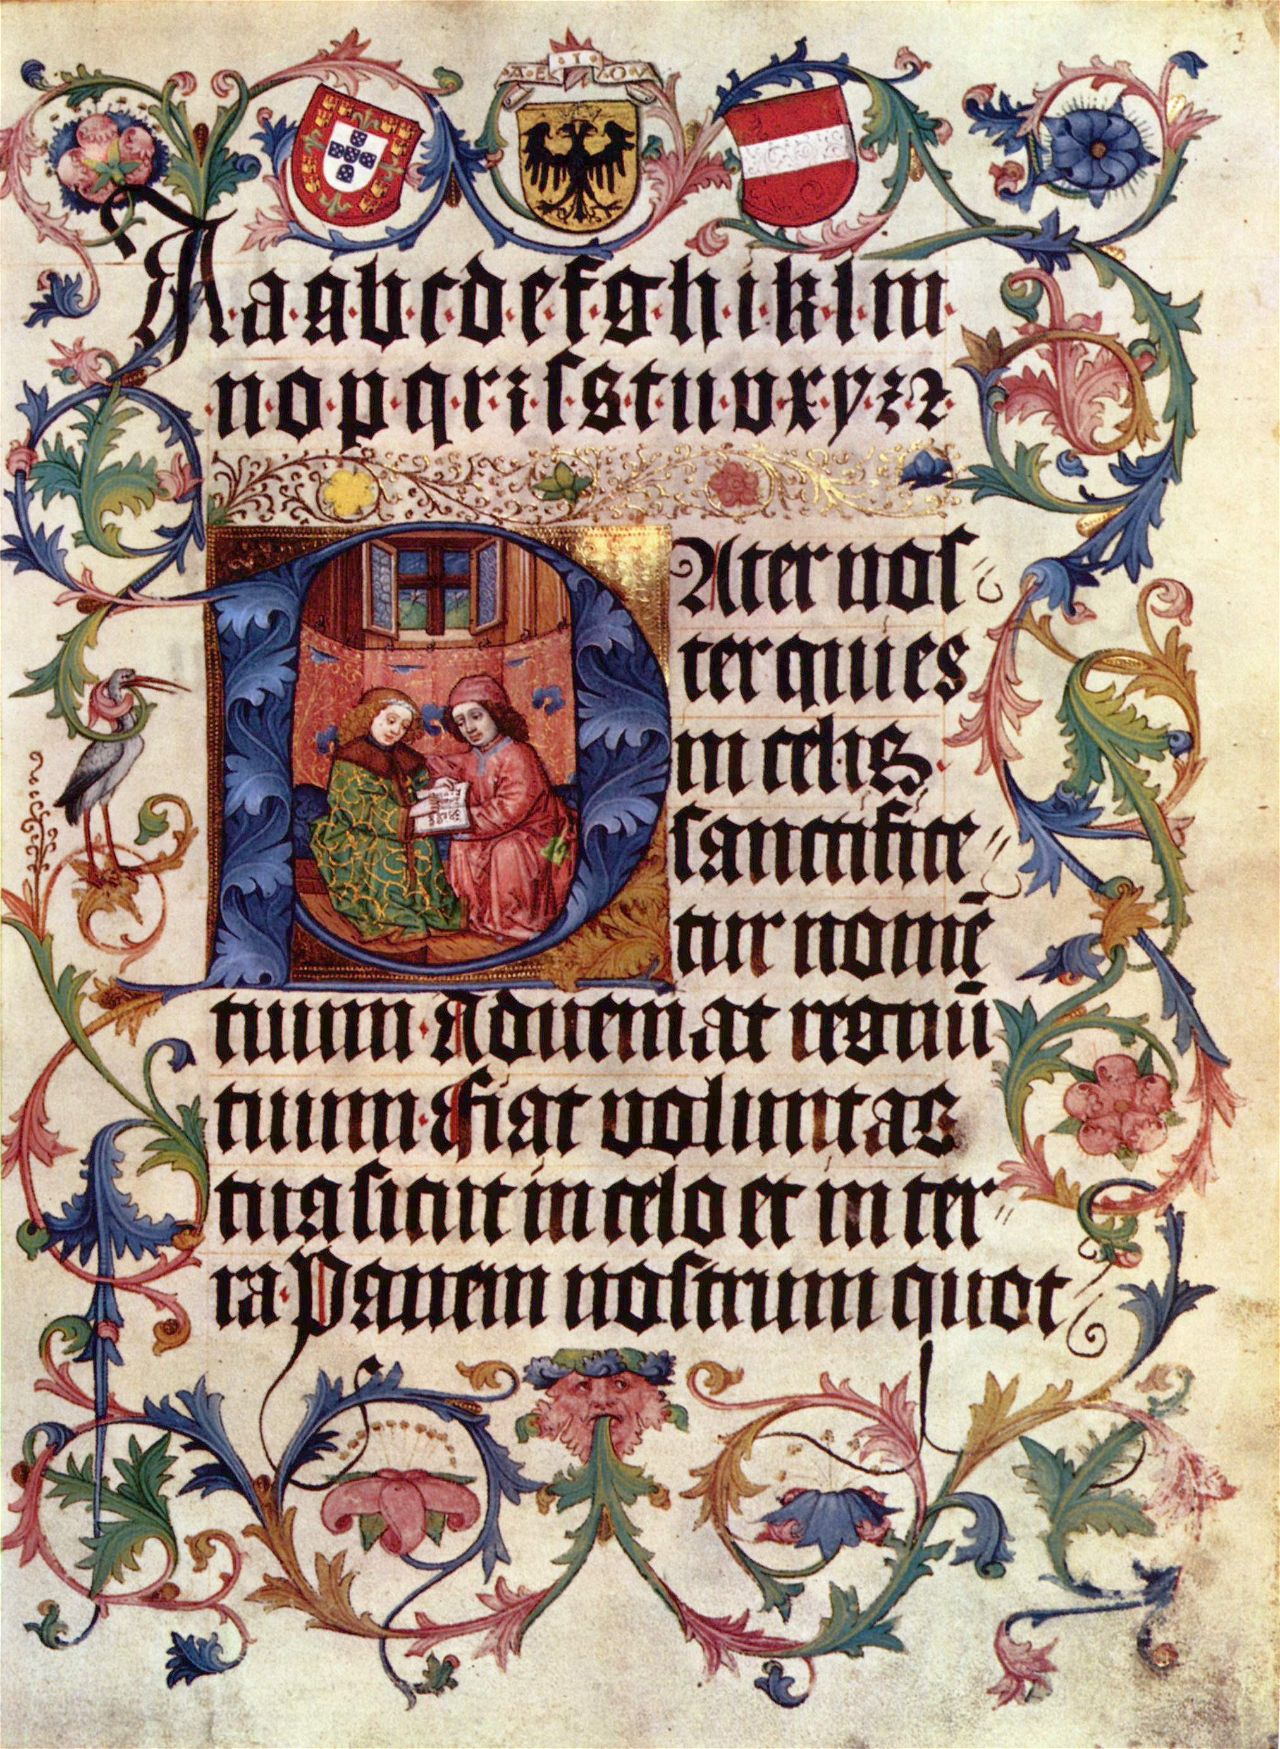 A E I O V
A a a b c d e f g h i k l m
n o p q r ꝛ ſ s t u v x y z ꝛ
PAter noſ
ter qui es
in celis
ſanctifice
tur nomē
tuum Adueniat regnū
tuum Fiat voluntas
tua ſicut in celo et in ter
ra Panem noſtrum quot